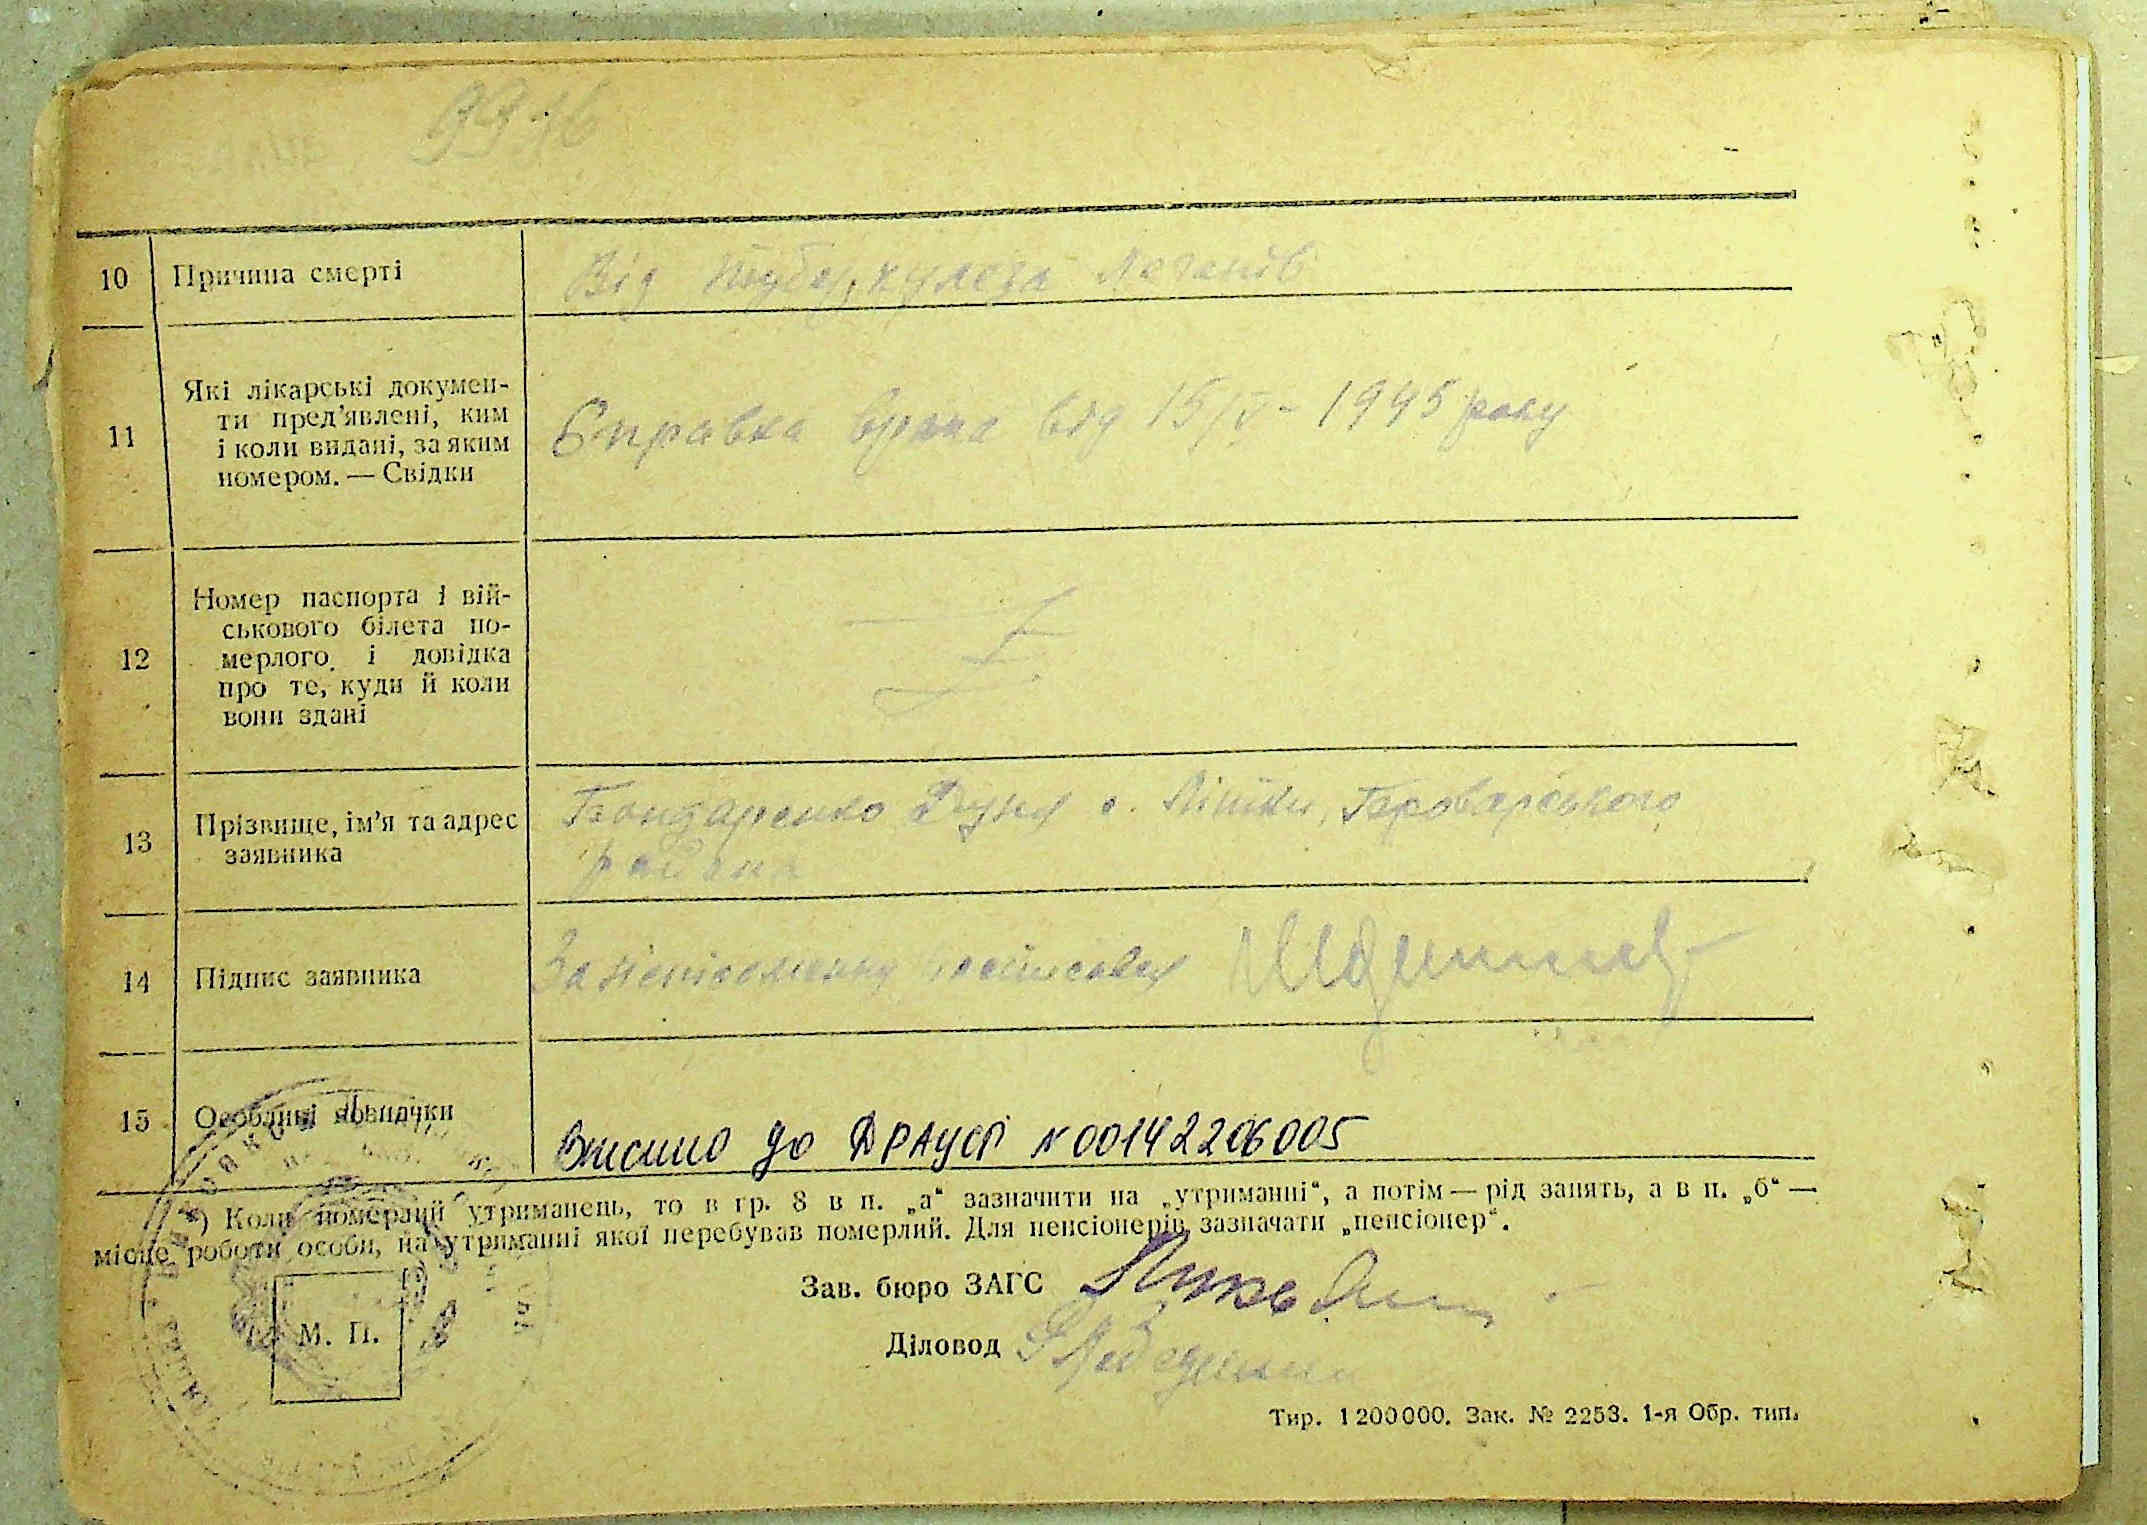 10 Причина смерті Від туберкулеза легенів
11 Які лікарські докумен-
ти пред'явлені, ким
і коли видані, за яким
номером. — Свідки
Справка врача від 15/IV - 1945 року
12 Номер паспорта і вій-
ськового білета по-
мерлого і довідка
про те, куди й коли
вони здані
13 Прізвище, ім'я та адрес
заявника
Бондаренко с. Літки, Броварського
району
14 Підпис заявника
15 Особливі позначки
Внесено до ДРАЦСГ № 00142206005
*) Коли померлий утриманець, то в гр. 8 в п. „а“ зазначити на „утриманні“, а потім — рід занять, а в п. „б“ —
місце роботи особи, на утриманні якої перебував померлий. Для пенсіонерів зазначати „пенсіонер“.
Зав. бюро ЗАГС
М. П.
Діловод
Тир. 1200000. Зак. № 2253. 1-я Обр. тип.